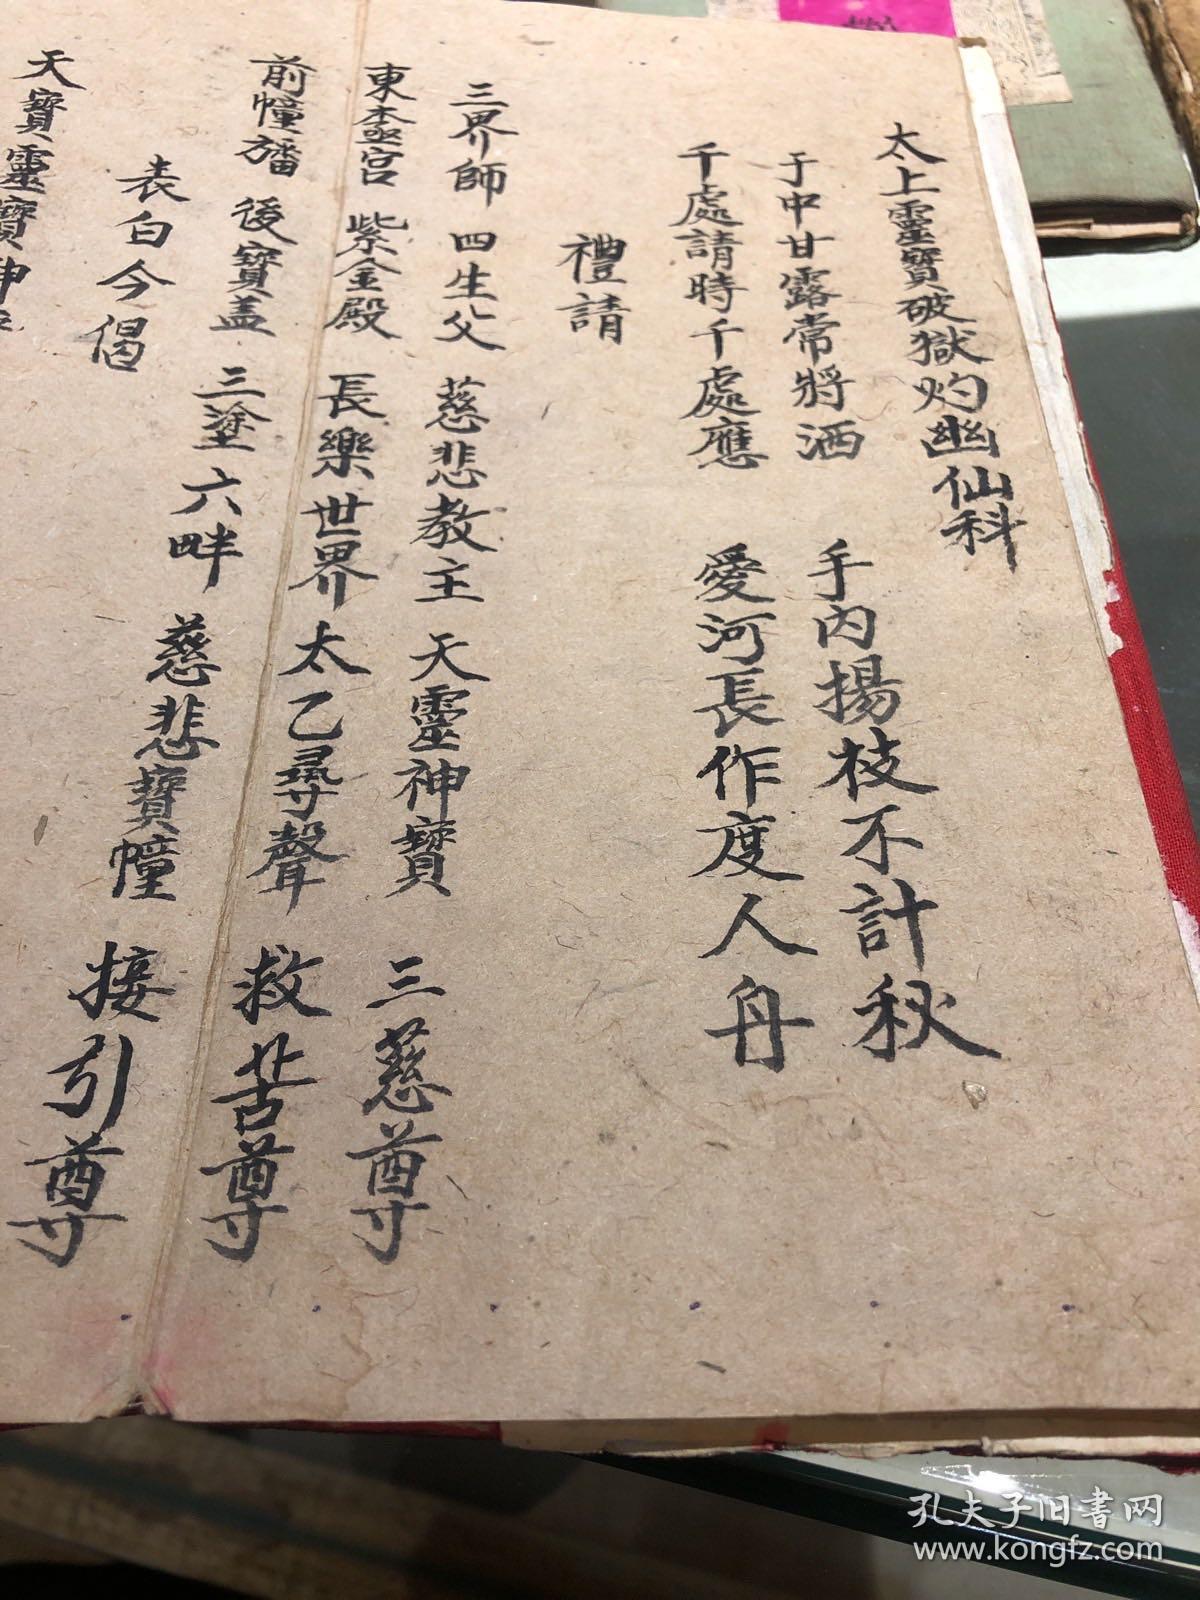 太上靈寶破獄灼幽仙科
于中甘露常將洒 手內揚枝不計秋
千處請時千處應 愛河長作度人舟
禮請
三界師 四生父 慈悲教主 天靈神寶 三慈尊
東壺宮 紫金殿 長樂世界 太乙尋聲 救苦尊
前幢旛 後寶盖 三塗六畔 慈悲寶幢 接引尊
表白今偈
天寶靈寶神
孔夫子旧书网
www.kongfz.com